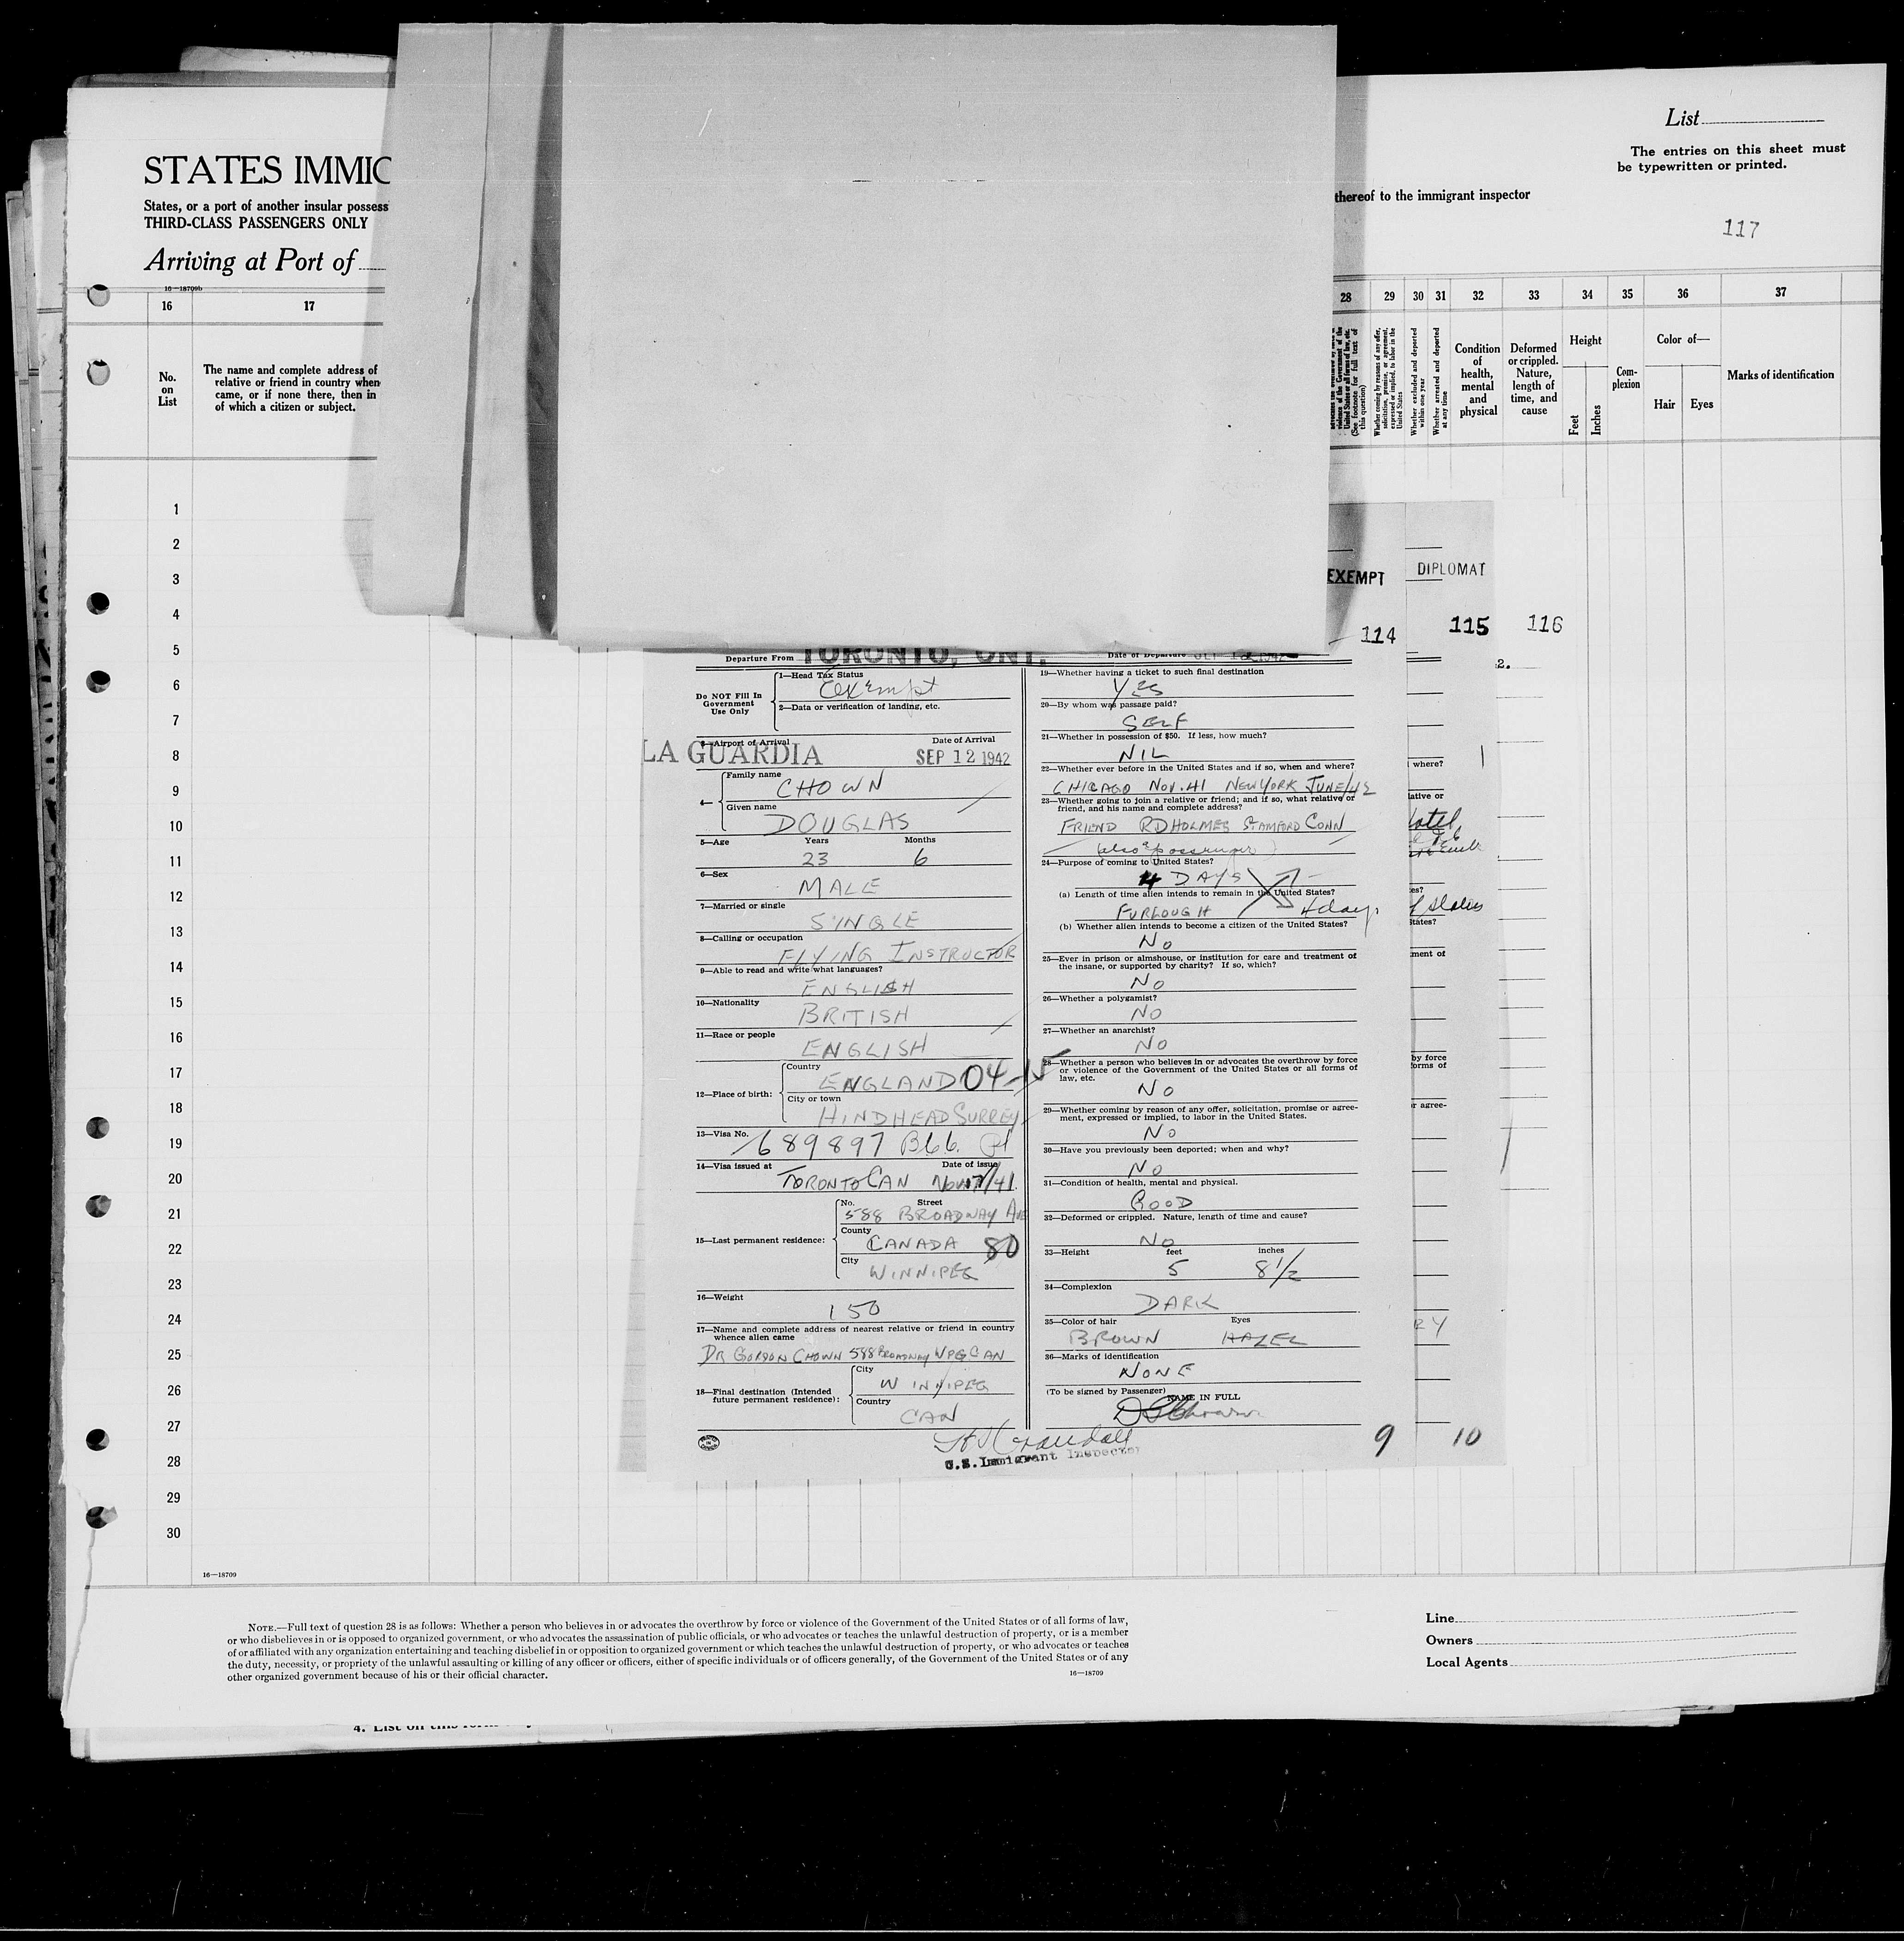 List
The entries on this sheet must
be typewritten or printed.
STATES IMMIG
States, or a port of another insular possess
THIRD-CLASS PASSENGERS ONLY
thereof to the immigrant inspector
117
Arriving at Port of
16—18709b
16 17 28 29 30 31 32 33 34 35 36 37
No. on List
The name and complete address of
relative or friend in country when
came, or if none there, then in
of which a citizen or subject.
violence of the Government of the
United States or all forms of law, etc.
(See footnote for full text of
this question)
Whether coming by reasons of any offer,
solicitation, promise, or agreement,
expressed or implied, to labor in the
United States
Whether excluded and deported
within one year
Whether arrested and deported
at any time
Condition
of
health,
mental
and
physical
Deformed
or crippled.
Nature,
length of
time, and
cause
Height
Feet
Inches
Com-
plexion
Color of—
Hair Eyes
Marks of identification
1
2
3
4
5
6
7
8
9
10
11
12
13
14
15
16
17
18
19
20
21
22
23
24
25
26
27
28
29
30
EXEMPT DIPLOMAT
114 115 116
2.
Departure From TORONTO, ONT.
Date of Departure
Do NOT Fill In
Government
Use Only
1—Head Tax Status
Exempt
2—Data or verification of landing, etc.
3—Airport of Arrival Date of Arrival
LA GUARDIA SEP 12 1942
4—
Family name
CHOWN
Given name
DOUGLAS
5—Age Years Months
23 6
6—Sex
MALE
7—Married or single
SINGLE
8—Calling or occupation
FLYING INSTRUCTOR
9—Able to read and write what languages?
ENGLISH
10—Nationality
BRITISH
11—Race or people
ENGLISH
12—Place of birth:
Country
ENGLAND 04-15
City or town
HINDHEAD SURREY
13—Visa No.
689897 B66.
14—Visa issued at Date of issue
TORONTO CAN Nov 17/41
15—Last permanent residence:
No. Street
588 BROADWAY AVE
County
CANADA 80
City
WINNIPEG
16—Weight
150
17—Name and complete address of nearest relative or friend in country
whence alien came
DR GORDON CHOWN 588 BROADWAY WPG CAN
18—Final destination (Intended
future permanent residence):
City
WINNIPEG
Country
CAN
19—Whether having a ticket to such final destination
YES
20—By whom was passage paid?
SELF
21—Whether in possession of $50. If less, how much?
NIL
22—Whether ever before in the United States and if so, when and where?
CHICAGO NOV. 41 NEW YORK JUNE/42
23—Whether going to join a relative or friend; and if so, what relative or
friend, and his name and complete address?
FRIEND RD HOLMES STAMFORD CONN
(also a passenger)
24—Purpose of coming to United States?
4 DAYS
(a) Length of time alien intends to remain in the United States?
FURLOUGH 4 days
(b) Whether alien intends to become a citizen of the United States?
NO
25—Ever in prison or almshouse, or institution for care and treatment of
the insane, or supported by charity? If so, which?
NO
26—Whether a polygamist?
NO
27—Whether an anarchist?
NO
28—Whether a person who believes in or advocates the overthrow by force
or violence of the Government of the United States or all forms of
law, etc.
NO
29—Whether coming by reason of any offer, solicitation, promise or agree-
ment, expressed or implied, to labor in the United States.
NO
30—Have you previously been deported; when and why?
NO
31—Condition of health, mental and physical.
GOOD
32—Deformed or crippled. Nature, length of time and cause?
NO
33—Height feet inches
5 8 1/2
34—Complexion
DARK
35—Color of hair Eyes
BROWN HAZEL
36—Marks of identification
NONE
(To be signed by Passenger) NAME IN FULL
U.S. Immigrant Inspector
9 10
where?
lative or
es?
States?
ment of
by force
forms of
r agree-
RY
16—18709
NOTE.—Full text of question 28 is as follows: Whether a person who believes in or advocates the overthrow by force or violence of the Government of the United States or of all forms of law,
or who disbelieves in or is opposed to organized government, or who advocates the assassination of public officials, or who advocates or teaches the unlawful destruction of property, or is a member
of or affiliated with any organization entertaining and teaching disbelief in or opposition to organized government or which teaches the unlawful destruction of property, or who advocates or teaches
the duty, necessity, or propriety of the unlawful assaulting or killing of any officer or officers, either of specific individuals or of officers generally, of the Government of the United States or of any
other organized government because of his or their official character.
16—18709
Line
Owners
Local Agents